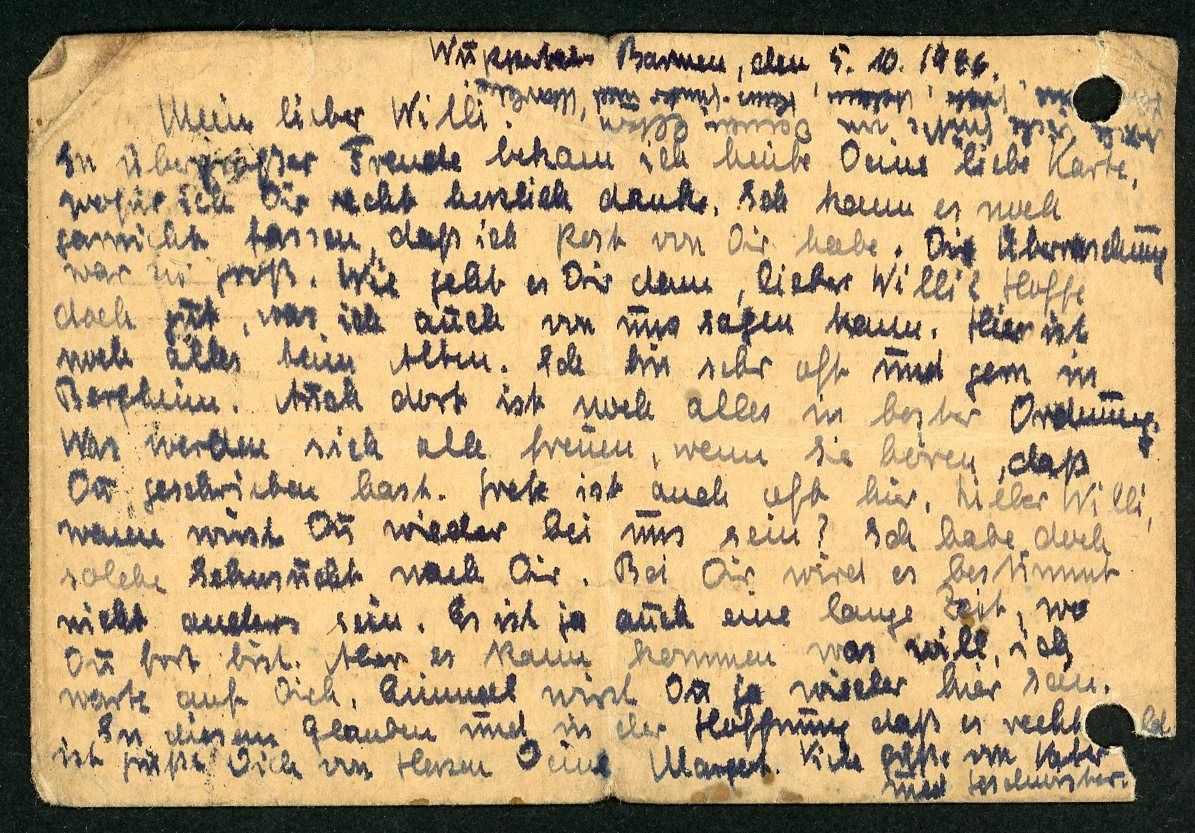 Wuppertal Barmen, den 5. 10. 1946.
Mein lieber Willi.
In übergroßer Freude bekam ich heute Deine liebe Karte,
wofür ich Dir recht herzlich danke. Ich kann es noch
garnicht fassen, daß ich Post von Dir habe. Die Überraschung
war zu groß. Wie geht es Dir denn, lieber Willi? Hoffe
doch gut, was ich auch von uns sagen kann. Hier ist
noch alles beim Alten. Ich bin sehr oft und gern in
Bergheim. Auch dort ist noch alles in bester Ordnung.
Was werden sich alle freuen, wenn sie hören, daß
Du geschrieben hast. Grete ist auch oft hier. Lieber Willi,
wann wirst Du wieder bei uns sein? Ich habe doch
solche Sehnsucht nach Dir. Bei Dir wird es bestimmt
nicht anders sein. Es ist ja auch eine lange Zeit, wo
Du fort bist. Aber es kann kommen was will, ich
warte auf Dich. Einmal wirst Du ja wieder hier sein.
In diesem Glauben und in der Hoffnung daß es recht bald
ist grüßt Dich von Herzen Deine Margret. Viele Grüße von Vater
und Geschwister.